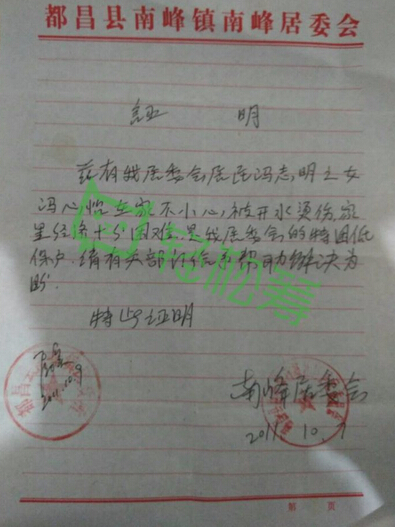 都昌县南峰镇南峰居委会
证 明
兹有我居委会居民冯志明之女
冯心怡在家不小心被开水烫伤,家
里经济十分困难,是我居委会的特困低
保户,请有关部门给予帮助解决为
盼
特此证明
轻松筹
2011.10.9
南峰居委会
2011.10.7
第 页